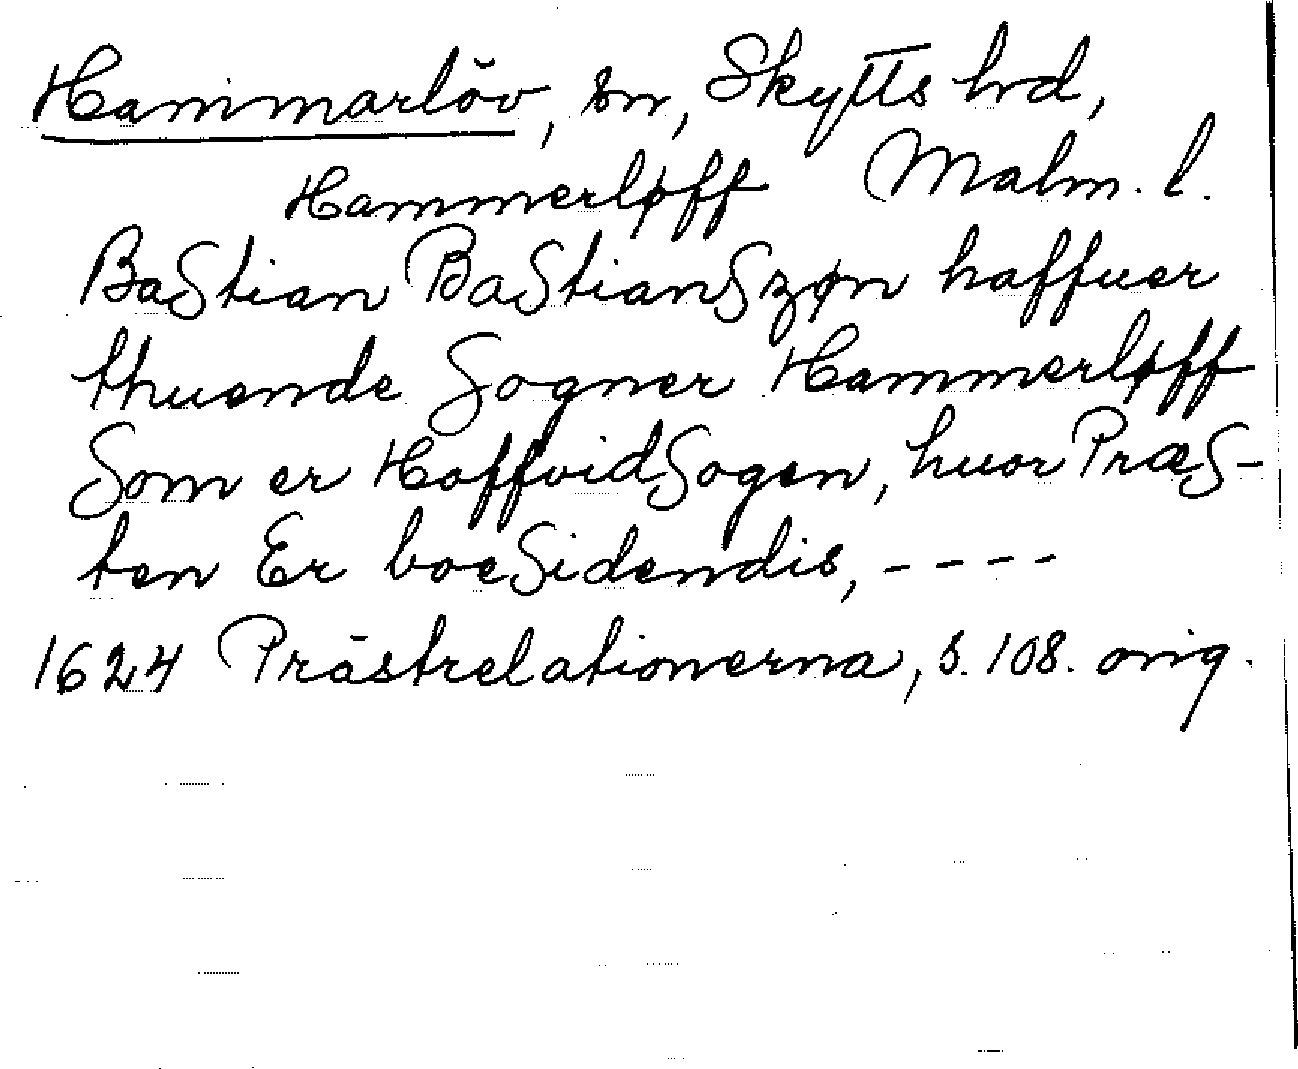 Hammarlöv, sn, Skytts hd,
Hammerløff Malm. l.
BaStian BaStianSzøn haffuer
thuende Sogner Hammerløff
Som er HoffvidSogen, huor PræS-
ten Er boeSidendis, ----
1624 Prästrelationerna, s. 108. orig.